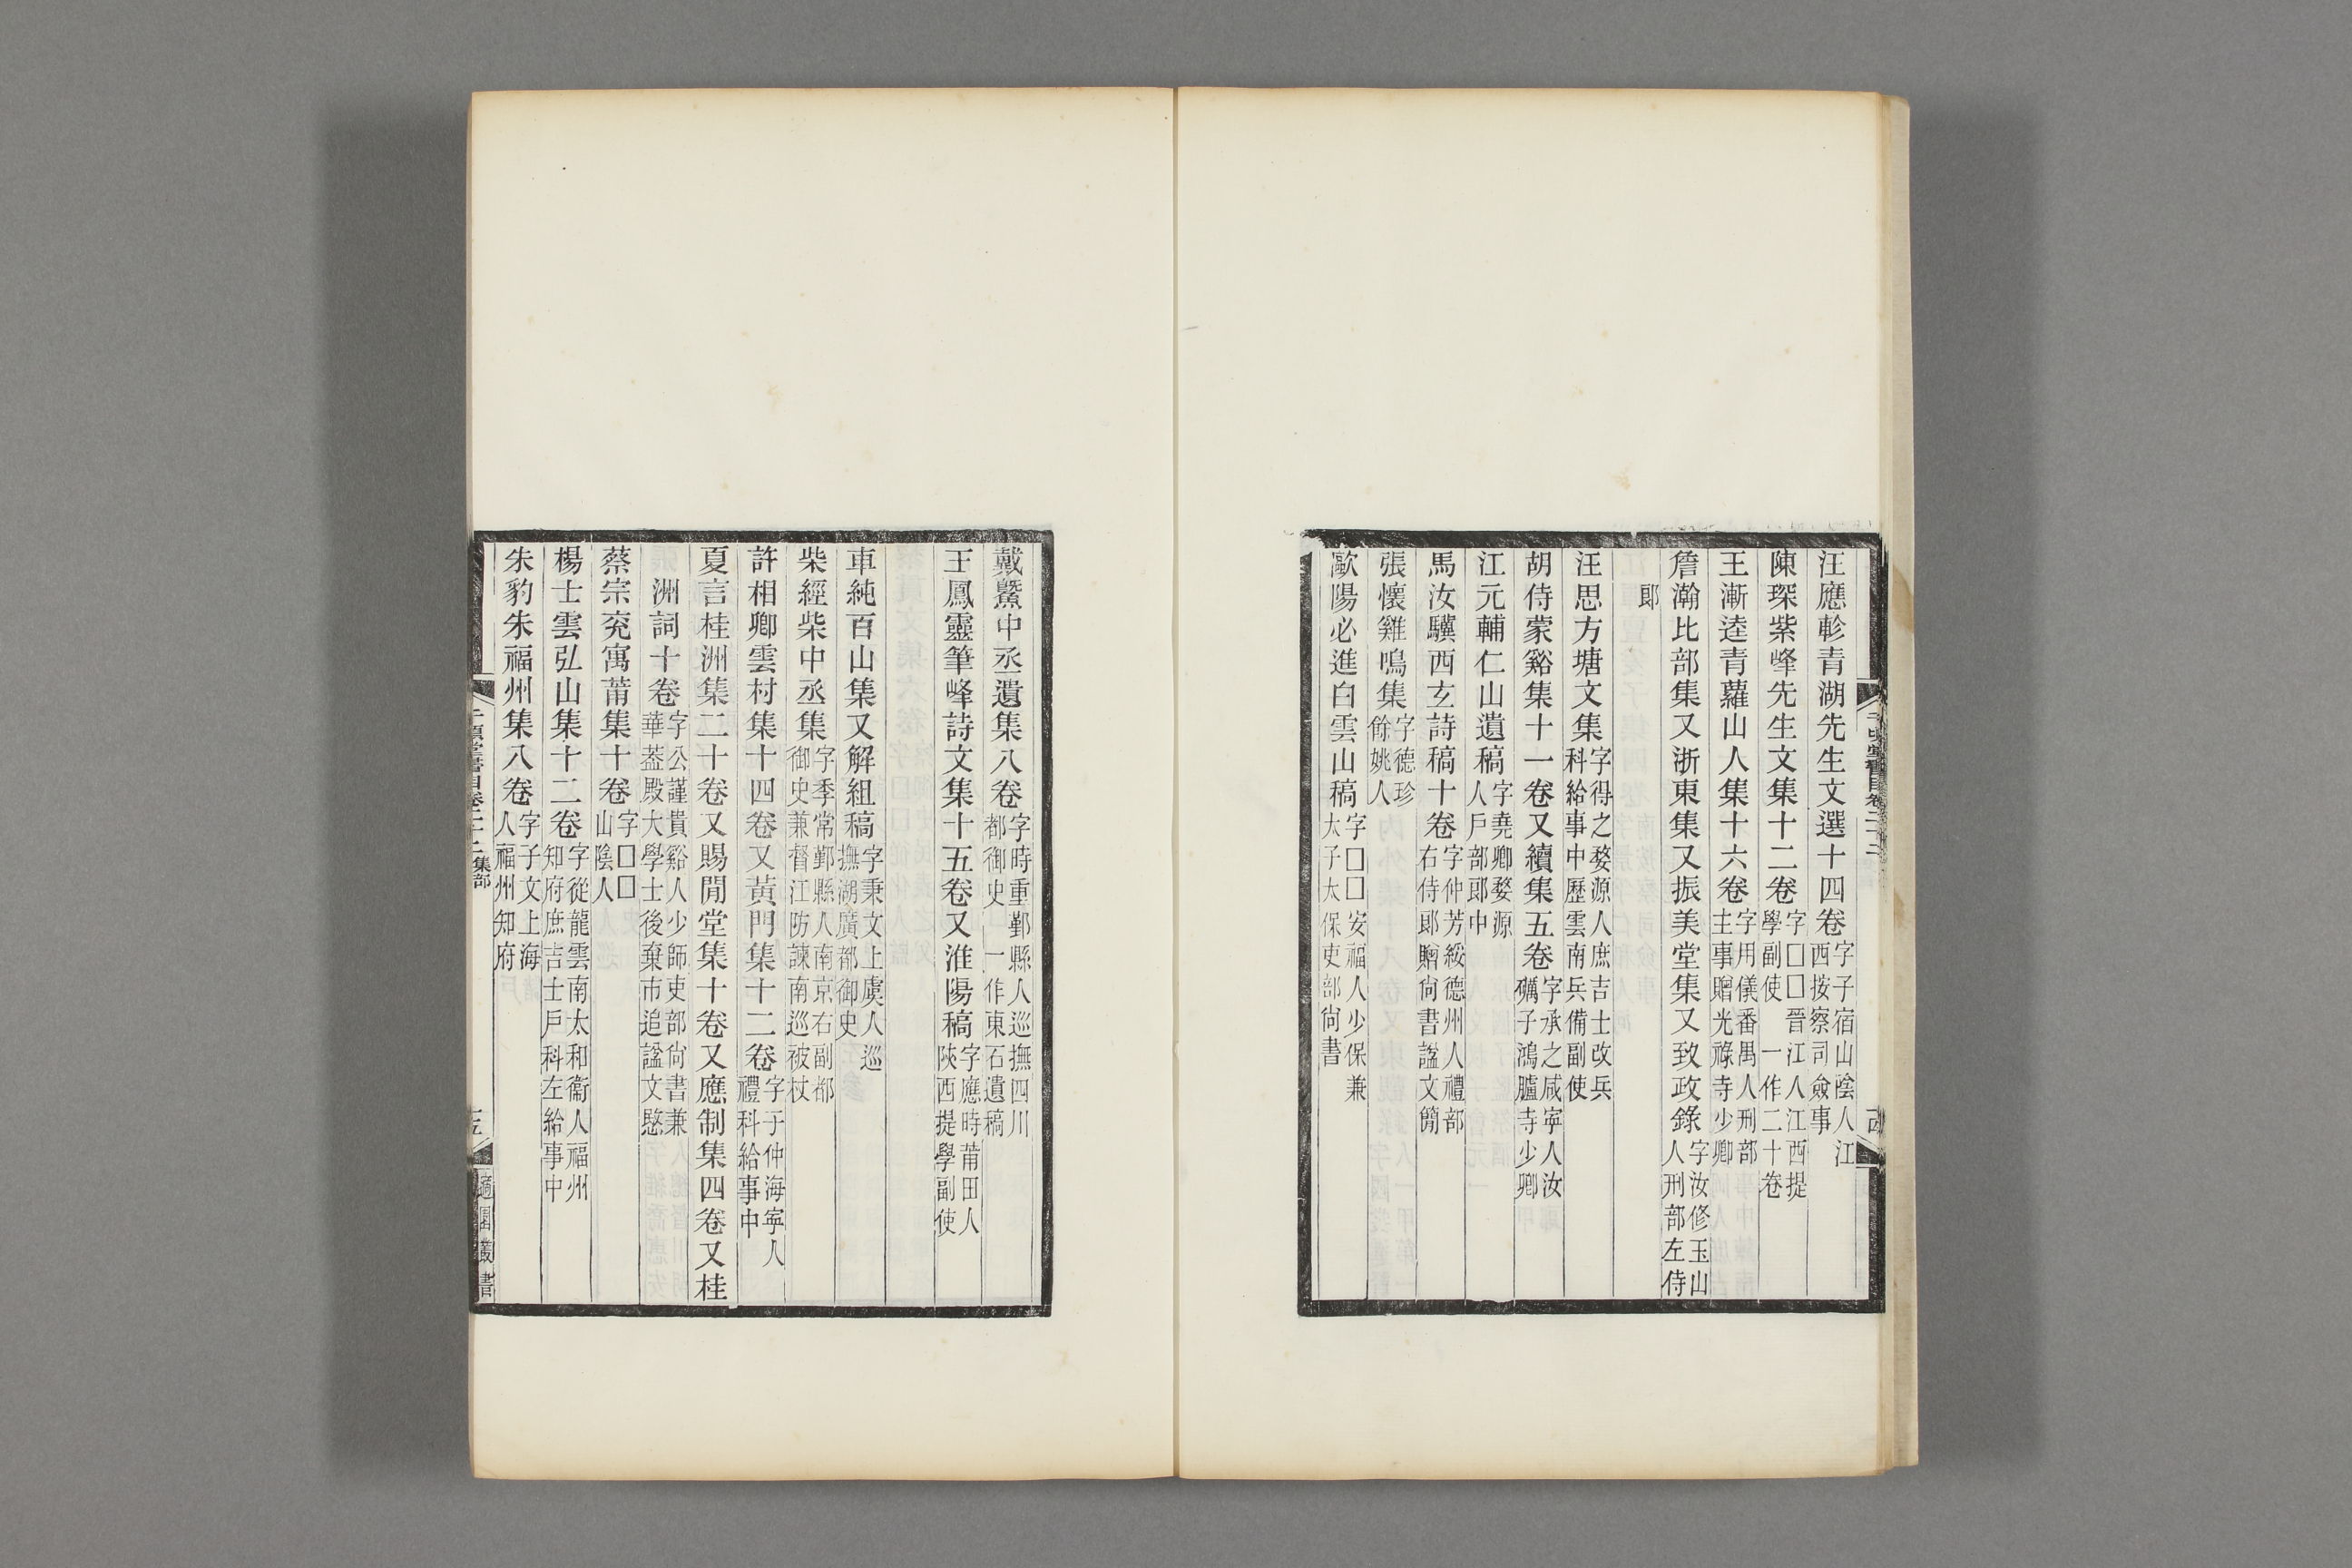 汪應軫青湖先生文選十四卷字子宿山陰人江西按察司僉事
陳琛紫峰先生文集十二卷字□□晉江人江西提學副使 一作二十卷
王漸逵青蘿山人集十六卷字用儀番禺人刑部主事贈光祿寺少卿
詹瀚比部集又浙東集又振美堂集又致政錄字汝修玉山人刑部左侍
郞
汪思方塘文集字得之婺源人庶吉士改兵科給事中歷雲南兵備副使
胡侍蒙谿集十一卷又續集五卷字承之咸寧人汝礪子鴻臚寺少卿
江元輔仁山遺稿字堯卿婺源人戶部郞中
馬汝驥西玄詩稿十卷字仲芳綏德州人禮部右侍郞贈尙書諡文簡
張懷雞鳴集字德珍餘姚人
歐陽必進白雲山稿字□□安福人少保兼太子太保吏部尙書
戴鱀中丞遺集八卷字時重鄞縣人巡撫四川都御史 一作東石遺稿
王鳳靈筆峰詩文集十五卷又淮陽稿字應時莆田人陝西提學副使
車純百山集又解組稿字秉文上虞人巡撫湖廣都御史
柴經柴中丞集字季常鄞縣人南京右副都御史兼督江防諫南巡被杖
許相卿雲村集十四卷又黃門集十二卷字于仲海寧人禮科給事中
夏言桂洲集二十卷又賜閒堂集十卷又應制集四卷又桂
洲詞十卷字公謹貴谿人少師吏部尙書兼華葢殿大學士後棄市追諡文愍
蔡宗兗寓莆集十卷字□□山陰人
楊士雲弘山集十二卷字從龍雲南太和衞人福州知府庶吉士戶科左給事中
朱豹朱福州集八卷字子文上海人福州知府
千頃堂書目卷二十二 集部
十五
適園叢書